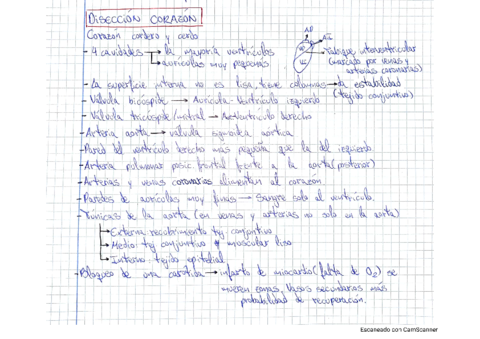 DISECCIÓN CORAZÓN
Corazón cordero y cerdo
AD
AI
- 4 cavidades → la mayoría ventrículos
→ aurículas muy pequeñas
→ Tabique interventricular
(marcado por venas y
arterias coronarias)
- La superficie interna no es lisa, tiene columnas → da estabilidad
(tejido conjuntivo)
- Válvula bicúspide → Aurícula-Ventrículo izquierdo
- Válvula tricúspide/mitral → Aur/Ventrículo derecho
- Arteria aorta → válvula sigmoidea aórtica
- Pared del ventrículo derecho más pequeña que la del izquierdo
- Arteria pulmonar posic. frontal frente a la aorta (posterior)
- Arterias y venas coronarias alimentan al corazón
- Paredes de aurículas muy finas → Sangre solo al ventrículo.
- Túnicas de la aorta (en venas y arterias no solo en la aorta)
→ Externa recubrimiento tej. conjuntivo
→ Media: tej conjuntivo y muscular liso
→ Interna: tejido epitelial
- Bloqueo de una carótida → infarto de miocardio (falta de O2) se
mueren zonas. Vasos secundarios más
probabilidad de recuperación.
Escaneado con CamScanner